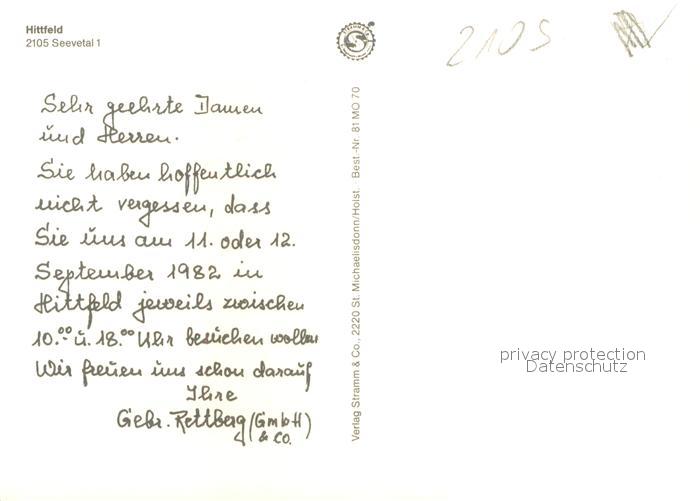 Hittfeld
2105 Seevetal 1
2105
Sehr geehrte Damen
und Herren.
Sie haben hoffentlich
nicht vergessen, dass
Sie uns am 11. oder 12.
September 1982 in
Hittfeld jeweils zwischen
10.⁰⁰ u. 18.⁰⁰ Uhr besuchen wollen
Wir freuen uns schon darauf
Ihre
Gebr. Rettberg (GmbH)
& Co.
Verlag Stramm & Co., 2220 St. Michaelisdonn/Holst. Best.-Nr. 81 MO 70
privacy protection
Datenschutz